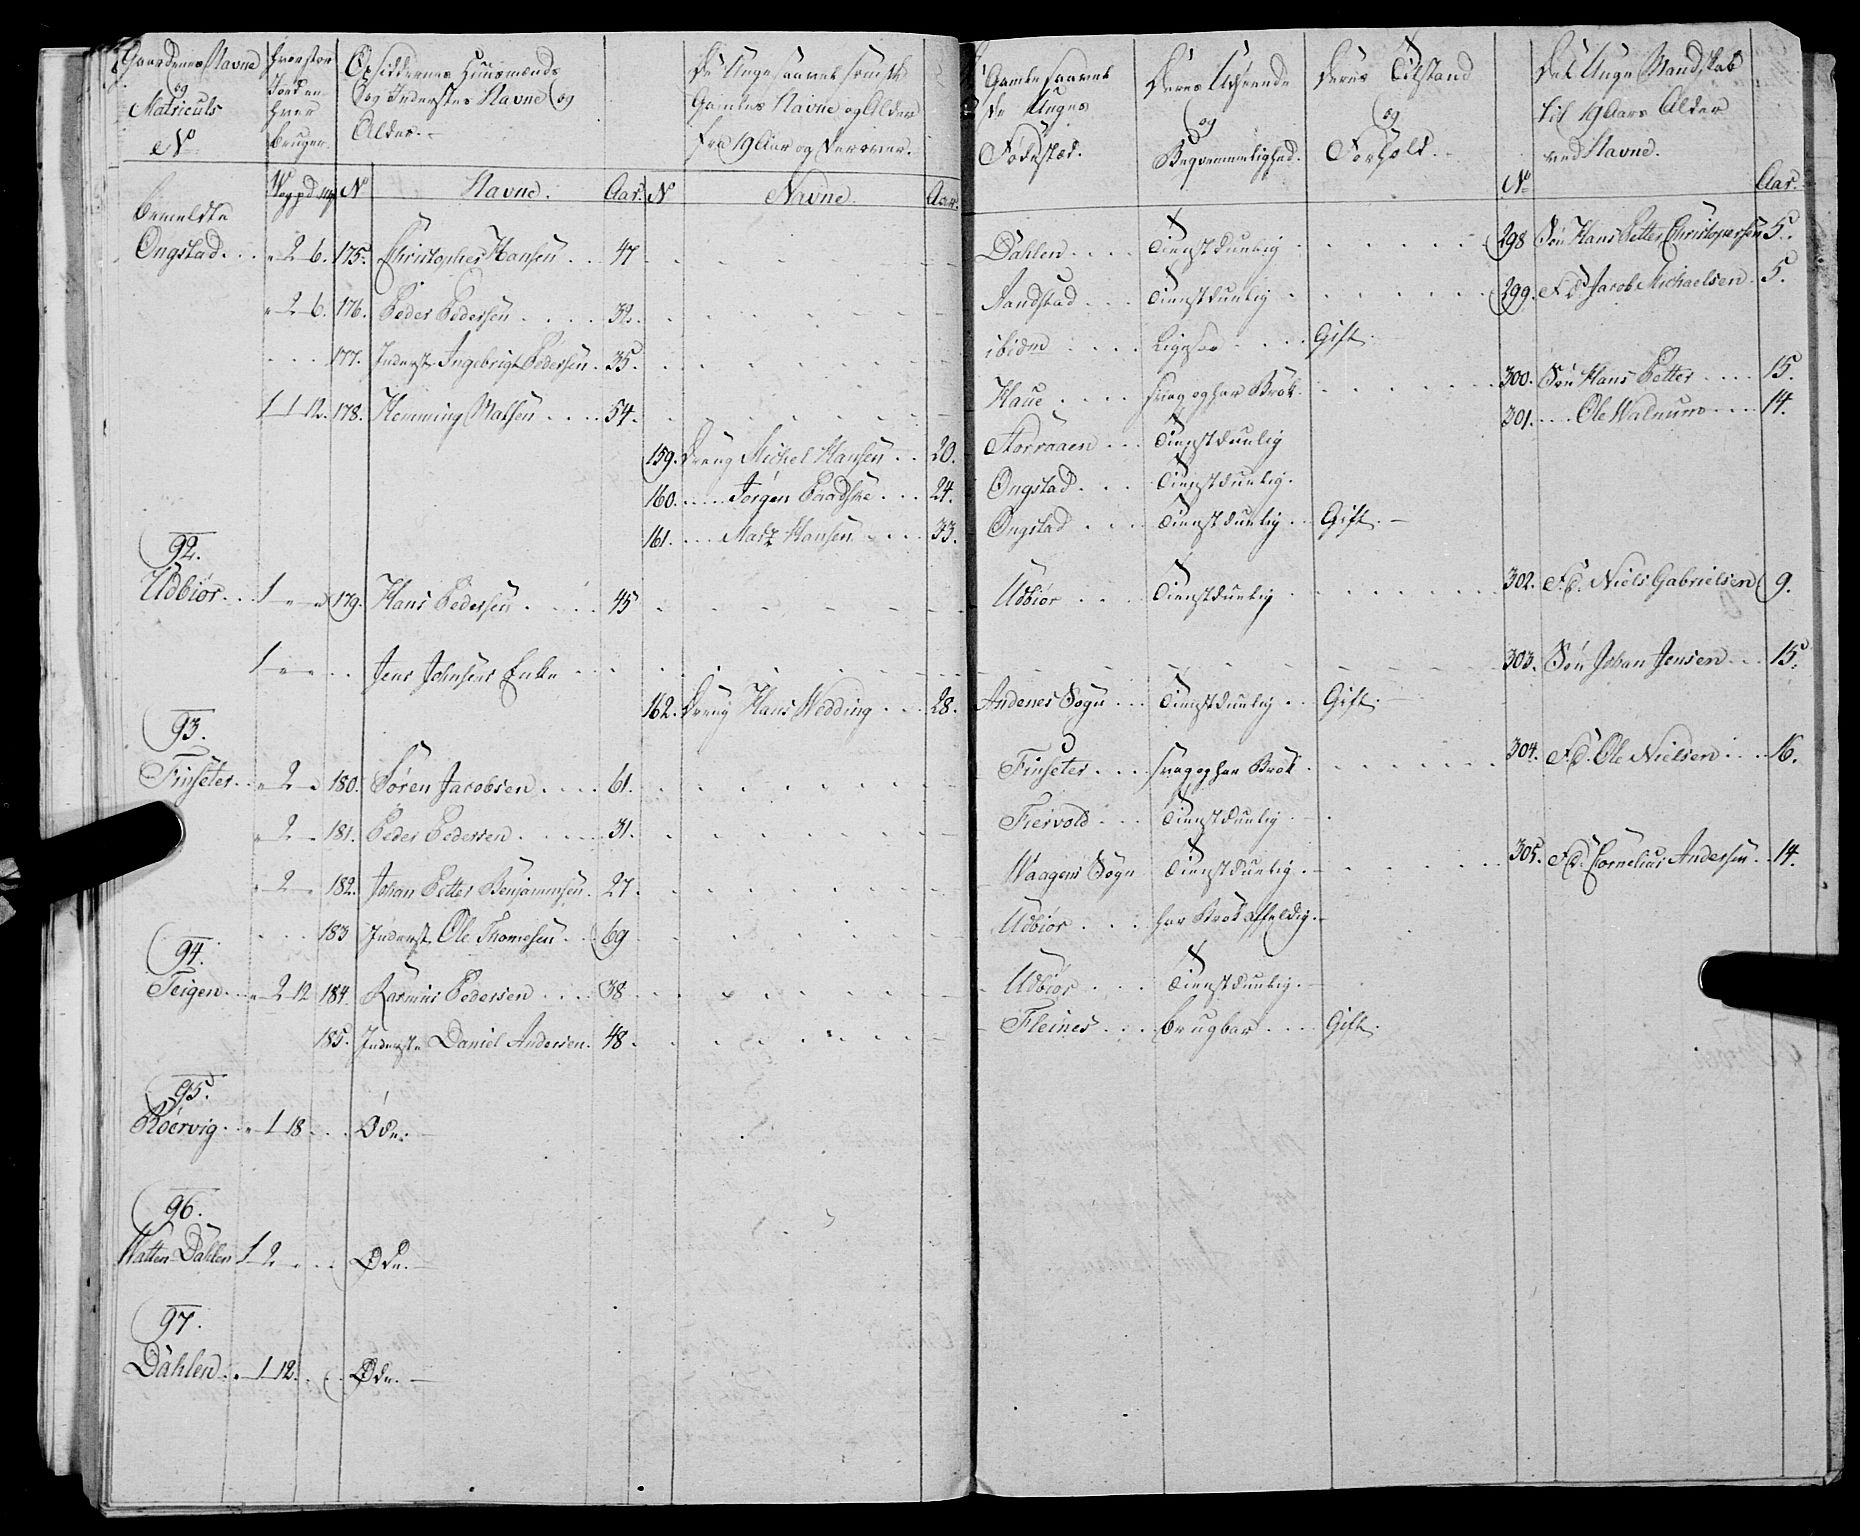 Gaardenes Navne og Matriculs No
hvor stor Jord en hver bruger.
Opsiddernes Huusmænds og Inderstes Navne og Alder.
De Unge saavel som de Gamles Navne og Alder fra 19 Aar og derover.
Gamle saavel de Unges Fødestæd.
Deres Udseende og Beqvemmelighed.
Deres Tilstand og Forhold.
Det Unge Mandskab til 19 Aars Alder ved Navne.
Wog pd mk No Navne. Aar. No Navne. Aar. No Aar.
bemeldte
Ongstad . . " 2 6. 175. Christopher Hansen . . 47 Dahlen . . . . Tienstduelig 298 Søn Hans Petter Christophersen 5.
" 2 6. 176. Peder Pedersen . . . . 32. Sandstad . . . Tienstduelig 299. Jacob Michaelsen . 5.
177. Inderst Ingebrigt Pedersen . 35. ibidm . . . . Ligesaa . . . . Gift.
1 1 12. 178. Hemming Matsen . . . . 54. Haue . . . . svag og har Brok. 300. Søn Hans Petter . . . . 15.
301. . . . Ole Walnum . . . . 14.
159. Dreng Michel Hansen . . 20. Storraaen . . . Tienstduelig
160. . . . . Jørgen Baadske . . . 24. Ongstad . . . Tienstduelig.
161. . . . Matz Hansen . . . . 33. Ongstad . . . . Tienstduelig . . Gift.
92.
Udbiör . . . 1 " " 179. Hans Pedersen . . . . 45 Udbiör . . . . Tienstduelig 302. Niels Gabrielsen 9.
1 " " . . Jens Johnsens Enke . . . 303. Søn Johan Jensen . . . 15.
162. Dreng Hans Wedding . . . 28. Andenes Sogn . . . Tienstduelig . . Gift.
93.
Finseter . . " 2 " 180. Søren Jacobsen . . . . 61. Finseter . . . svag og har Brok 304. Ole Nielsen . . . . 16.
" 2 " 181. Peder Pedersen . . . . . 31. Fiervold . . . Tienstduelig .
" 2 " 182. Johan Petter Benjaminsen . 27. Waagens Sogn Tienstduelig . 305. Cornelius Andersen . . 14.
183 Inderst Ole Thomesen . . 69 Udbiör . . . har Brok affældig.
94.
Teigen . . " 2 12 184. Rasmus Pedersen . . . . 38 Udbiör . . . Tienstduelig.
185. Inderste Daniel Andersen . 48. Fleines . . . brugbar . . . Gift.
95.
Röervig . . " 1 18 . . . Øde.
96.
Watten Dahlen 1 2 " . . Øde.
97.
Dahlen . " 1 12. . . Øde.